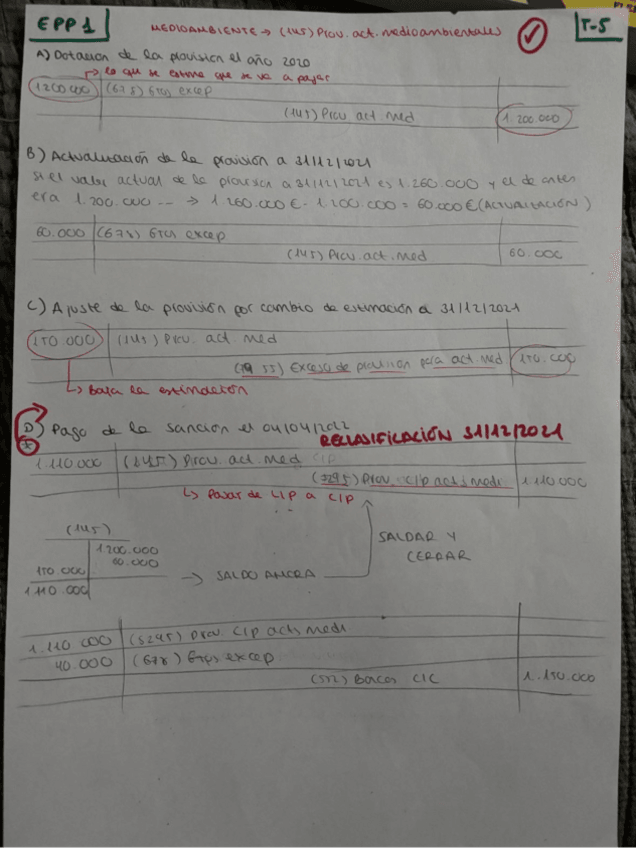 EPP1
MEDIOAMBIENTE → (145) Prov. act. medioambientales
T-5
A) Dotación de la provisión el año 2020
→ lo que se estima que se va a pagar
1200000 (678) Gtos excep
(145) Prov. act. med 1.200.000
B) Actualización de la provisión a 31/12/2021
Si el valor actual de la provisión a 31/12/2021 es 1.260.000 y el de antes
era 1.200.000 ... → 1.260.000€ - 1.200.000 = 60.000€ (ACTUALIZACIÓN)
60.000 (678) Gtos excep
(145) Prov. act. med 60.000
C) Ajuste de la provisión por cambio de estimación a 31/12/2021
150.000 (145) Prov. act. med
(7955) Exceso de provisión para act. med 150.000
↳ Baja la estimación
D) Pago de la sanción el 04/04/2022
RECLASIFICACIÓN 31/12/2021
1.110.000 (145) Prov. act. med
(5295) Prov. c/p act. medi 1.110.000
↳ Pasar de L/P a C/P
(145)
1200.000
150.000 60.000
1.110.000 → SALDO AHORA
SALDAR Y
CERRAR
1.110.000 (5295) Prov. C/p act. medi
40.000 (678) Gtos excep
(572) Bancos C/C 1.150.000